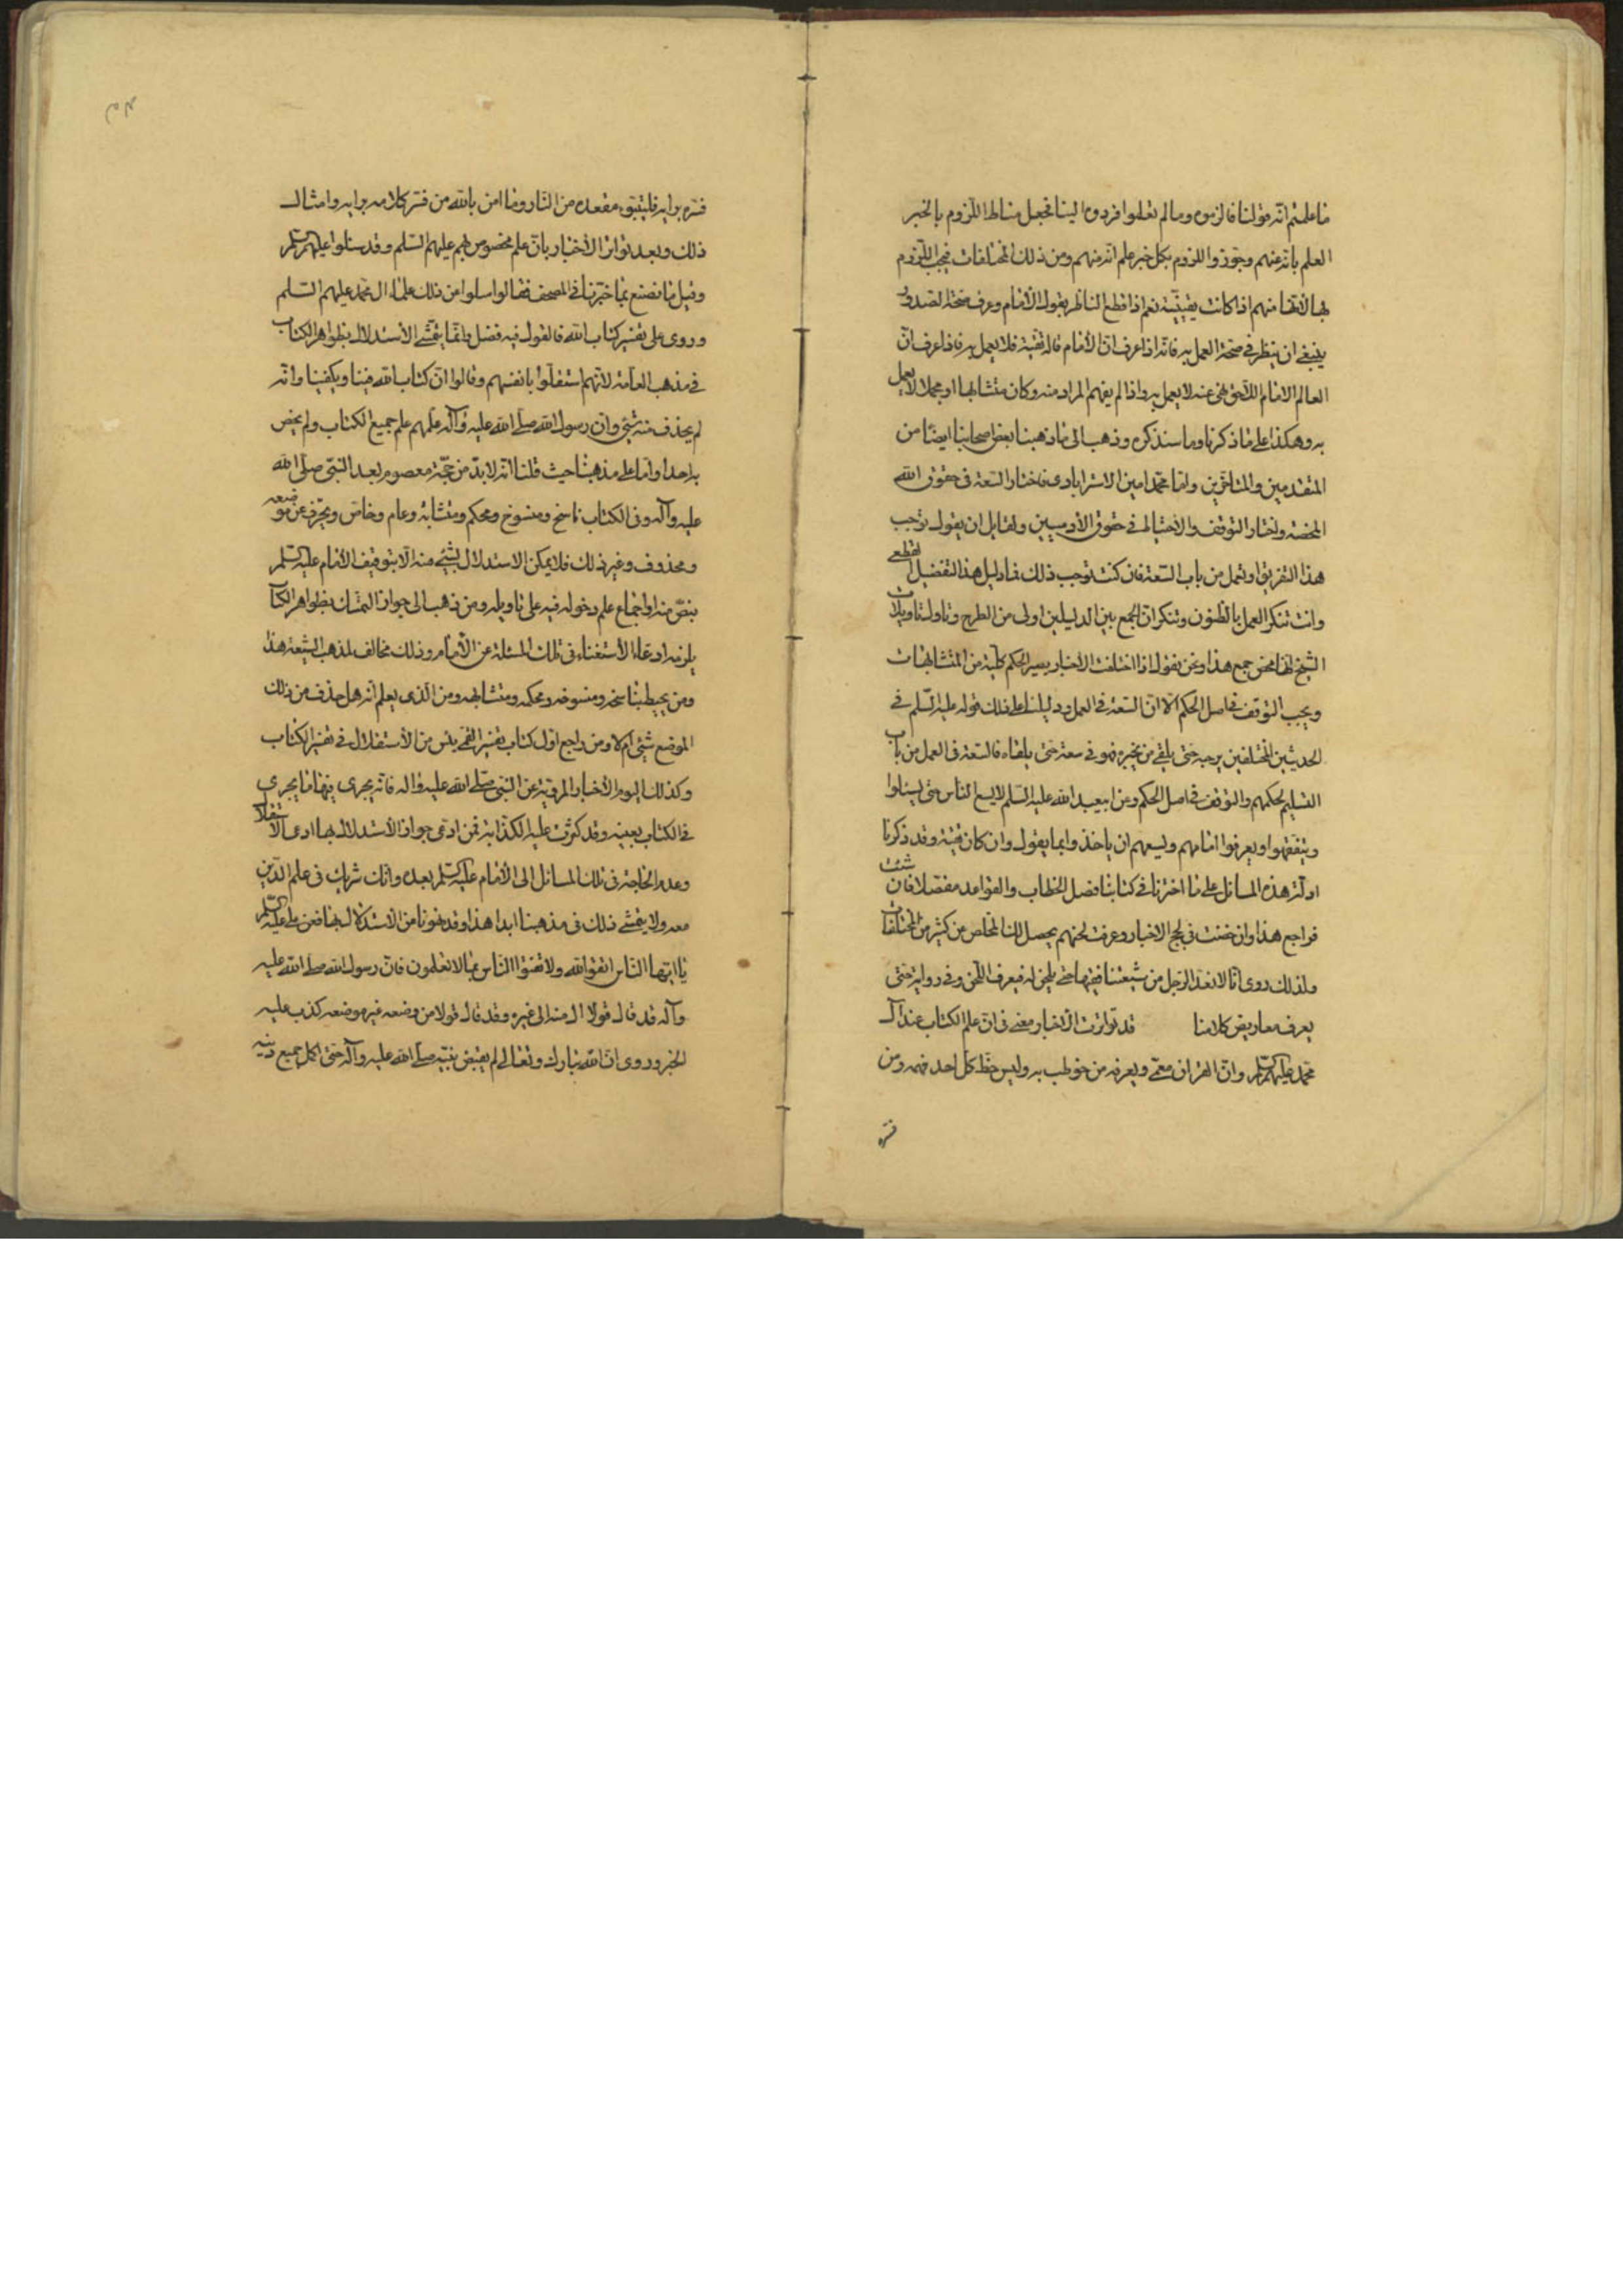 ما علمتم انه قولنا فالزموه وما لم تعلموا فردوه الينا فجعل مناط اللزوم بالخبر
العلم بانه عنهم وجوزوا اللزوم بكل خبر علم انه منهم ومن ذلك المختلفات فيجب اللزوم
بها لانها منهم اذا كانت يقينية نعم اذا قطع الناظر بقول الامام وعرف صحة الصدور
ينبغى ان ينظر فى صحة العمل به فانه اذا عرف ان الامام قاله تقية فلا يعمل به فاذا عرف ان
العالم الامام اللاحق نهى عنه لا يعمل به واذا لم يفهم المراد منه وكان متشابها او مجملا لا يعمل
به وهكذا على ما ذكرنا وما سنذكره وذهب الى ما ذهبنا بعض اصحابنا ايضا من
المتقدمين والمتاخرين واما محمد امين الاسترابادى فاختار السعة فى حقوق الله
المحضة واختار التوقف والاحتياط فى حقوق الآدميين ولقايل ان يقول توجب
هذا التفريق او تعمل من باب السعة فان كنت توجب ذلك فما دليل هذا التفضيل القطعى
وانت تنكر العمل بالظنون وتنكر ان الجمع بين الدليلين اولى من الطرح وتاولت تاويلات
الشيخ بمحض جمع هذا ونحن نقول اذا اختلفت الاخبار يصير الحكم كلية من المتشابهات
ويجب التوقف فى اصل الحكم الا ان السعة فى العمل ودليلنا على ذلك قوله عليه السلم فى
الحديثين المختلفين يرجه حتى يلقى من يخبره فهو فى سعة حتى يلقاه فالسعة فى العمل من باب
التسليم لحكمهم والتوقف فى اصل الحكم وعن ابيعبد الله عليه السلم لا يسع الناس حتى يسئلوا
ويتفقهوا او يعرفوا امامهم ويسعهم ان ياخذوا بما يقول وان كان تقية وقد ذكرنا
ادلة هذه المسائل على ما اخترنا فى كتابنا فصل الخطاب والقواعد مفصلا فان شئت
فراجع هذا وان خضت فى لجج الاخبار وعرفت لحنهم يحصل لك المخلص من كثير من المختلفات
ولذلك روى انا لا نعد الرجل من شيعتنا فقيها حتى يلحن له فيعرف اللحن وفى رواية حتى
يعرف معاريض كلامنا قد تواترت الاخبار معنى فى ان علم الكتاب عند آل
محمد عليهم السلم وان القرآن معمى ويعرفه من خوطب به وليس حظ كل احد فهمه ومن
فسره
فسره برايه فليتبوء مقعده من النار وما امن بالله من فسر كلامه برايه وامثال
ذلك وبعد تواتر الاخبار بان علم مخصوص بهم عليهم السلم وقد سئلوا عليهم السلم
وقيل ما نصنع بما خبرنا فى المصحف فقالوا سلوا عن ذلك علماء آل محمد عليهم السلم
وروى على تفسير كتاب الله فالقول فيه فصل وانما يتمشى الاستدلال بظواهر الكتاب
فى مذهب العامة لانهم استقلوا بانفسهم وقالوا ان كتاب الله فينا ويكفينا وانه
لم يحذف منه شئ وان رسول الله صلى الله عليه وآله علمهم علم جميع الكتاب ولم يخص
به احدا واما على مذهبنا حيث قلنا انه لا بد من حجة معصوم بعد النبى صلى الله
عليه وآله وفى الكتاب ناسخ ومنسوخ ومحكم ومتشابه وعام وخاص ومحرف عن موضعه
ومحذوف وغير ذلك فلا يمكن الاستدلال بشئ منه الا بتوقيف الامام عليه السلم
بنص منه او اجماع علم دخوله فيه على تاويله ومن ذهب الى جواز التمسك بظواهر الكتاب
يلزمه ادعاء الاستغناء فى تلك المسئلة عن الامام وذلك مخالف لمذهب الشيعة هذا
ومن يحيط بناسخه ومنسوخه ومحكمه ومتشابهه ومن الذى يعلم انه هل حذف من ذلك
الموضع شئ ام لا ومن راجع اول كتاب تفسير القمى يئس من الاستقلال فى تفسير الكتاب
وكذلك اليوم الاخبار المروية عن النبى صلى الله عليه وآله فانه يجرى فيها ما يجرى
فى الكتاب بعينه وقد كثرت عليه الكذابة فمن ادعى جواز الاستدلال بها ادعى الاستقلال
وعدم الحاجة فى تلك المسائل الى الامام عليه السلم بعده وانك شريك فى علم الدين
معه ولا يتمشى ذلك فى مذهبنا ابدا هذا وقد نهونا من الاستدلال بها فعن على عليه السلم
يا ايها الناس اتقوا الله ولا تفتوا الناس بما لا تعلمون فان رسول الله صلى الله عليه
وآله قد قال قولا آل منه الى غيره وقد قال قولا من وضعه غير موضعه كذب عليه
الخبر وروى ان الله تبارك وتعالى لم يقبض نبيه صلى الله عليه وآله حتى اكمل جميع دينه